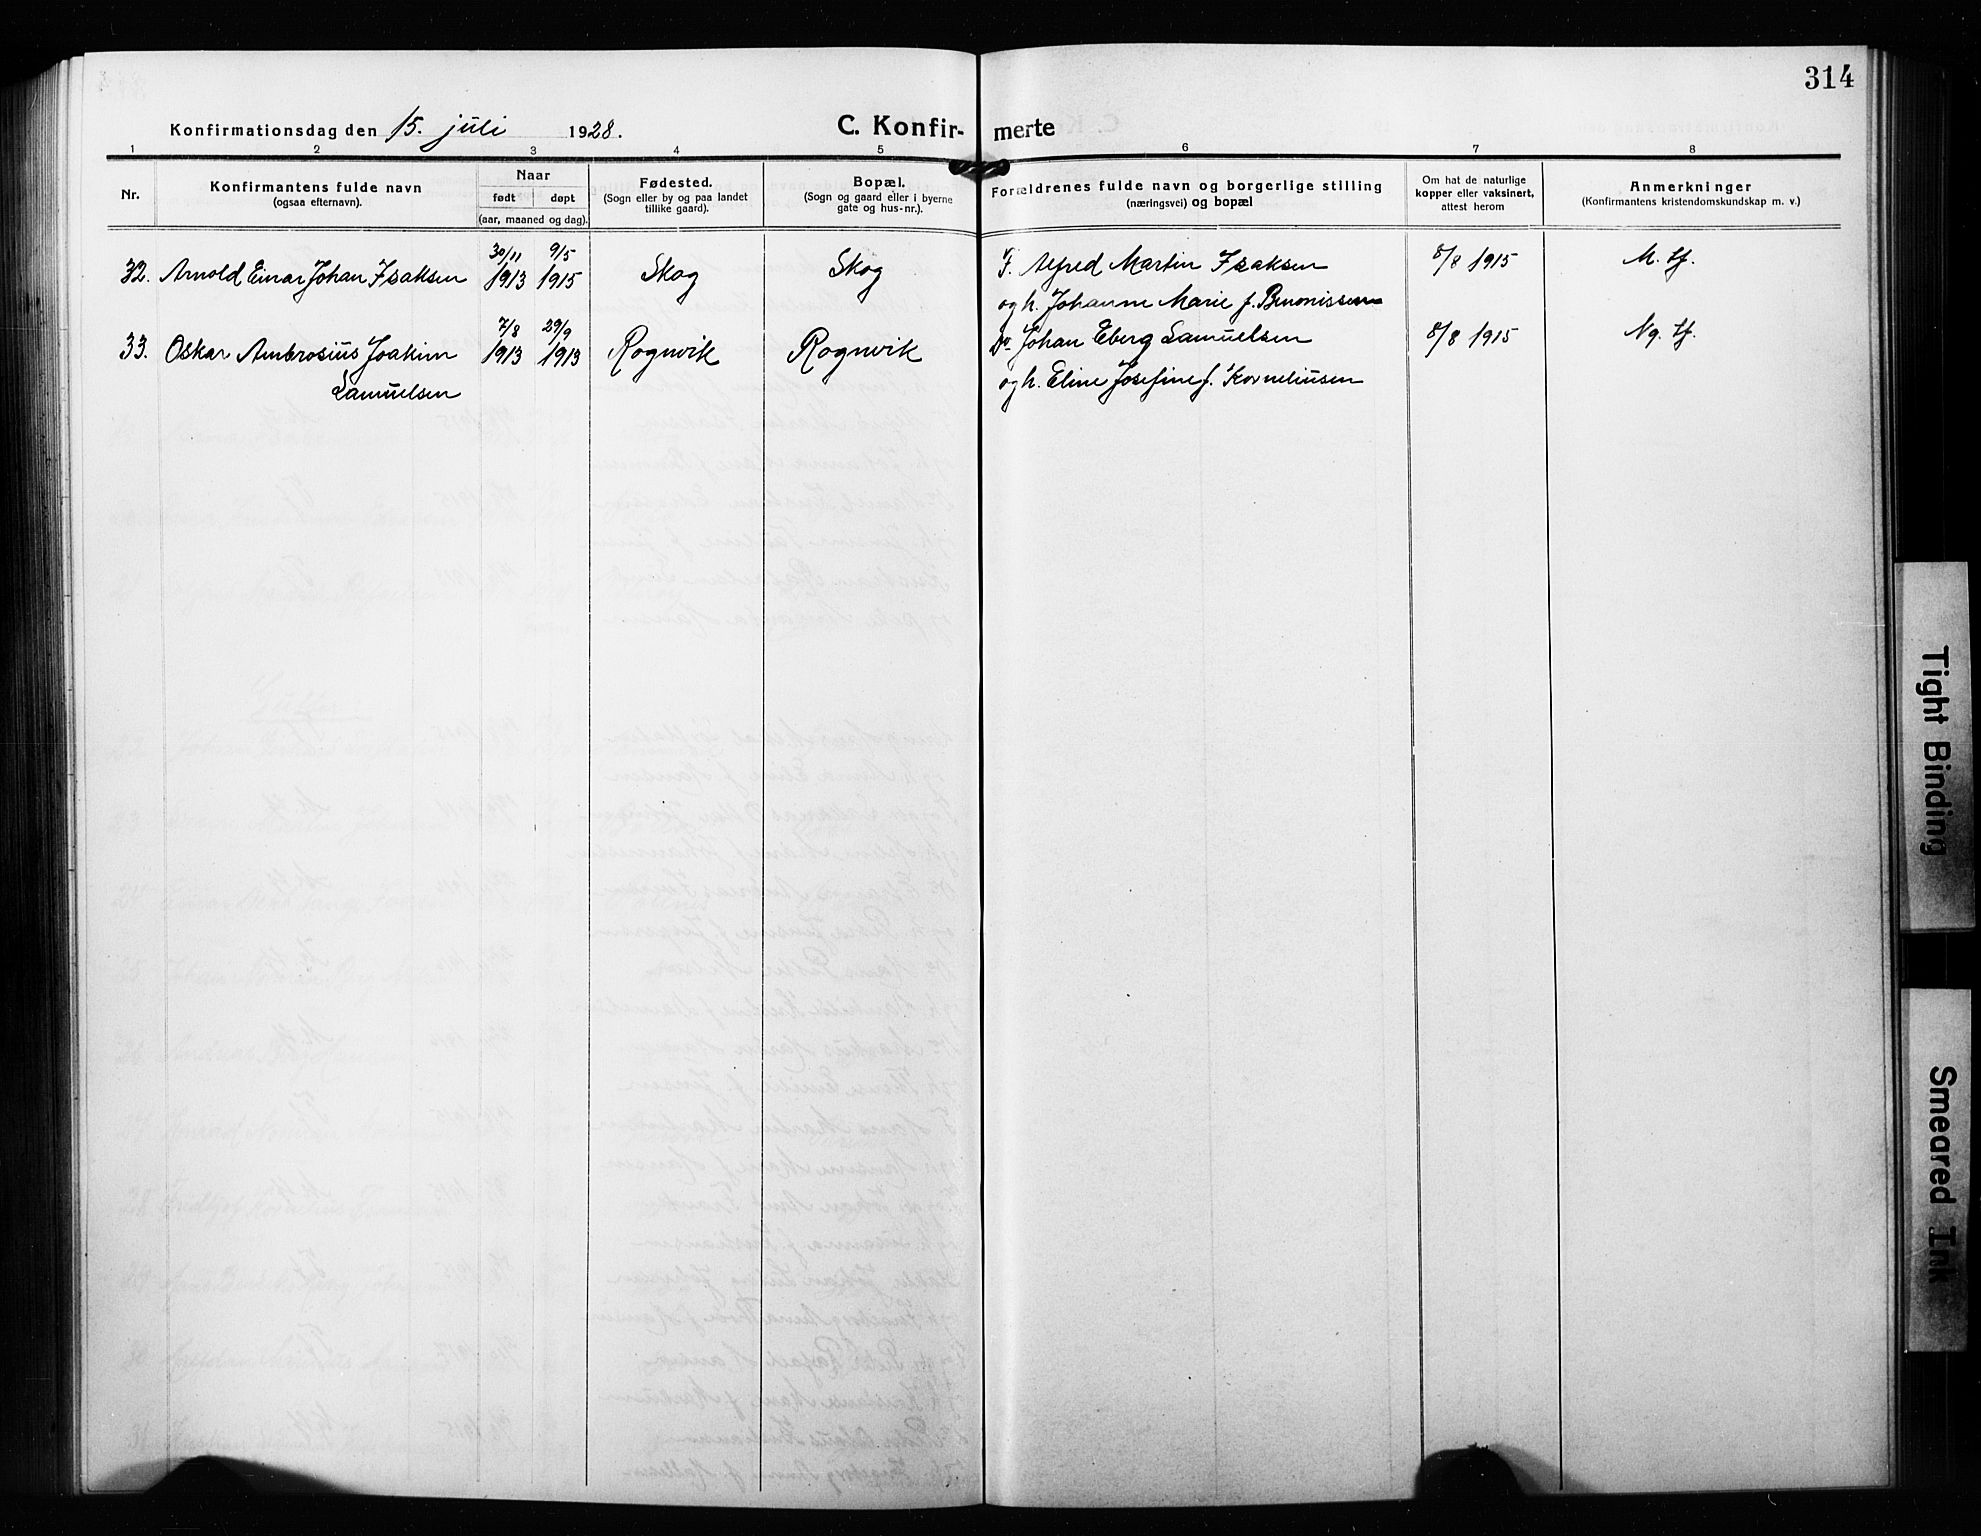 314
Konfirmationsdag den 15. juli 1928.
C. Konfir- merte
1 2 3 4 5 6 7 8
Nr.
Konfirmantens fulde navn
(ogsaa efternavn).
Naar
født døpt
(aar, maaned og dag).
Fødested.
(Sogn eller by og paa landet
tillike gaard).
Bopæl.
(Sogn og gaard eller i byerne
gate og hus-nr.).
Forældrenes fulde navn og borgerlige stilling
(næringsvei) og bopæl
Om hat de naturlige
kopper eller vaksinert,
attest herom
Anmerkninger
(Konfirmantens kristendomskundskap m. v.)
30/11 9/5
32. Arnold Einar Johan Isaksen 1913 1915 Skog Skog F. Alfred Martin Isaksen 8/8 1915 M. tf.
og h. Johanne Marie f. Benonissen
7/8 29/9
33. Oskar Ambrosius Joakim 1913 1913 Rognvik Rognvik Do Johan Eberg Samuelsen 8/8 1915 Ng. tf.
Samuelsen og h. Eline Josefine f. Korneliussen
Tight Binding
Smeared Ink